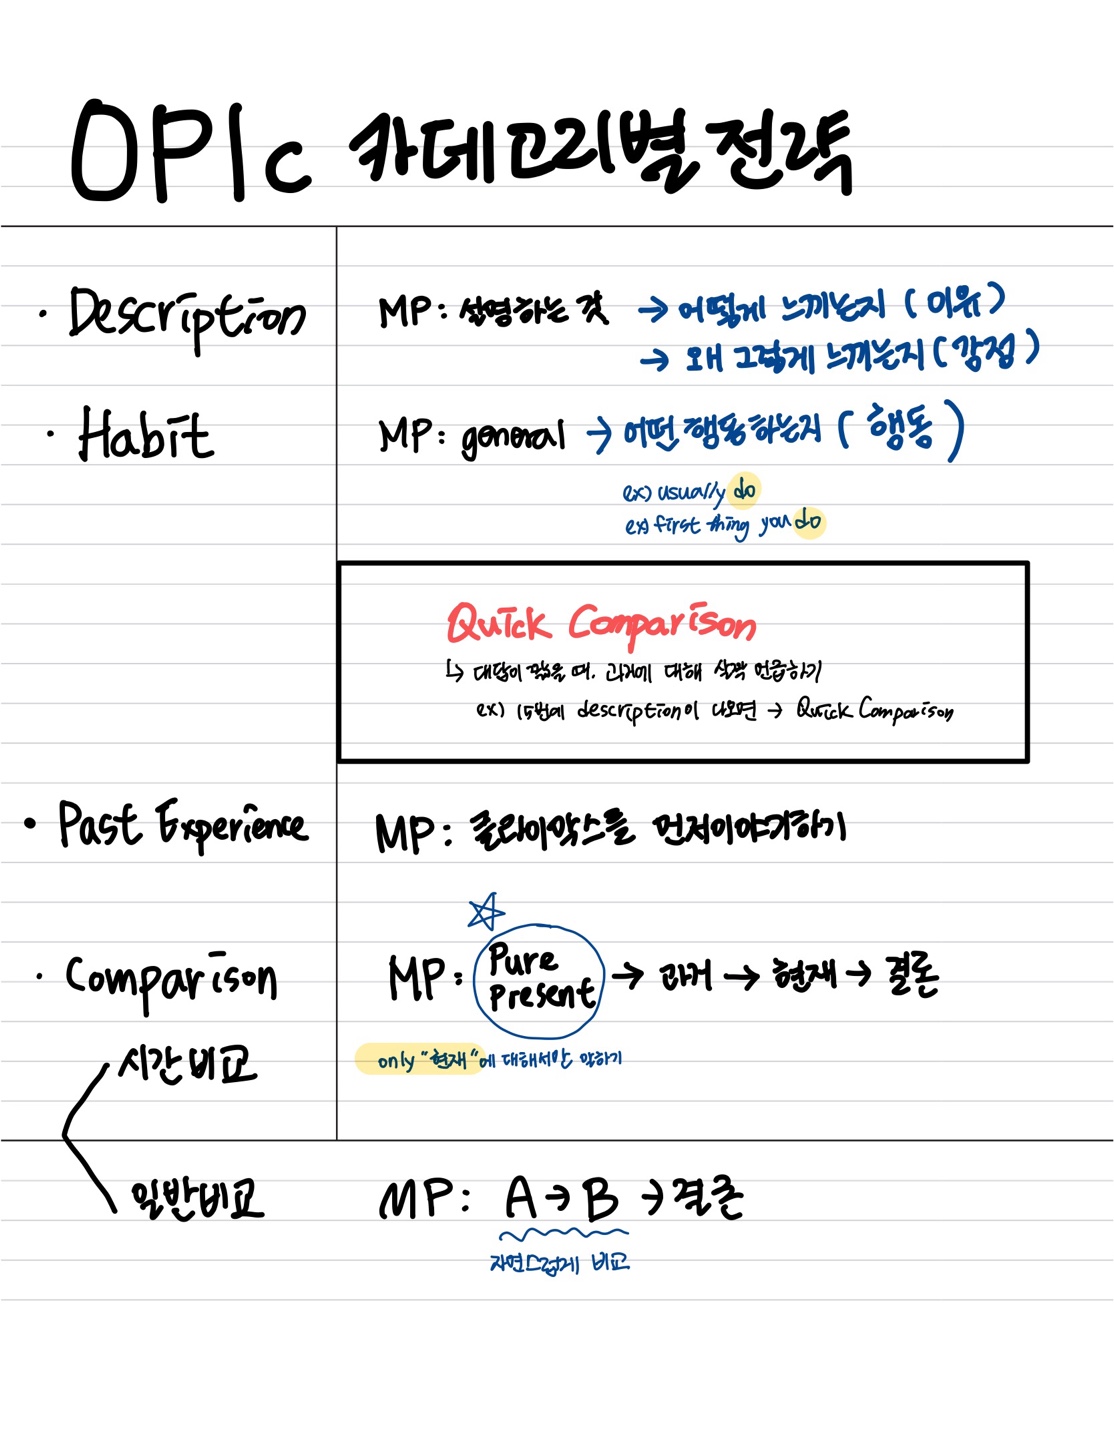 OPIc 카데고리별 전략
· Description MP: 설명하는 것 → 어떻게 느끼는지 (이유)
→ 왜 그렇게 느끼는지 (감정)
· Habit MP: general → 어떤 행동하는지 (행동)
ex) usually do
ex) first thing you do
Quick Comparison
↳ 대답이 짧을 때, 과거에 대해 살짝 언급하기
ex) 15번에 description이 나오면 → Quick Comparison
• Past Experience MP: 클라이막스를 먼저이야기하기
☆
· Comparison MP: Pure Present → 과거 → 현재 → 결론
시간비교 only "현재"에 대해서만 말하기
일반비교 MP: A → B → 결론
자연스럽게 비교